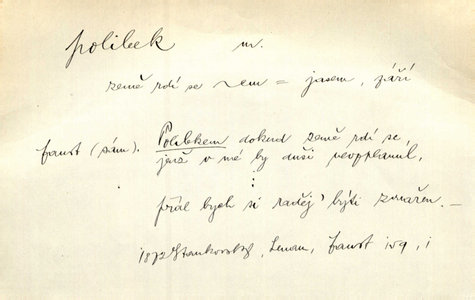 polibek m.
země rdí se ~em = jasem, září
Faust (sám). Polibkem dokud země rdí se,
jenž v mé by duši neopplanul,
⋮
přál bych si raděj' býti zmařen. —
1872 Stankovský, Lenau, Faust 109, 1